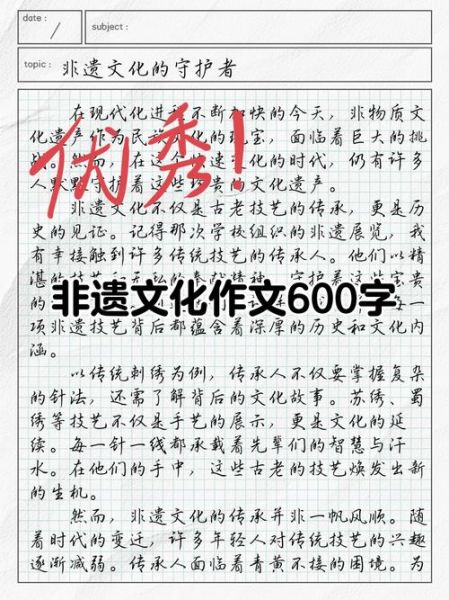 date :
subject :
topic : 非遗文化的守护者
在现代化进 不断加快的今天，非物质文
化遗产作为民族 化的瑰宝，面临着巨大的挑
战。然而，在这个快速 化的时代，仍有许多
人默默守护着这些珍贵的文化遗产。
优秀！
非遗文化不仅是古老技艺的传承，更是历
史的见证。记得那次学校组织的非遗展览，我
有幸接触到许多传统技艺的传承人。他们以精
守护着这些宝贵
非遗文化作文600字
项非遗技艺背后都蕴含着深厚的历史和文化内
涵。
以传统刺绣为例，传承人不仅要掌握复杂
的针法，还需了解背后的文化故事。苏绣、蜀
绣等技艺不仅是手艺的展示，更是文化的延
续。每一针一线都承载着先辈们的智慧与汗
水。在他们的手中，这些古老的技艺焕发出新
的生机。
然而，非遗文化的传承并非一帆风顺。随
着时代的变迁，许多年轻人对传统技艺的兴趣
逐渐减弱。传承人面临着青黄不接的困境。为